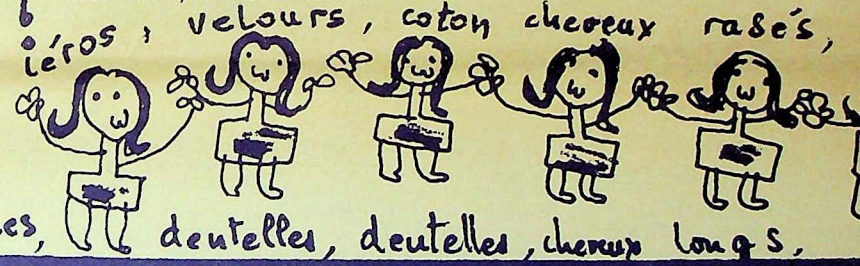 velours, coton cheveux rasés,
dentelles, dentelles, cheveux longs,